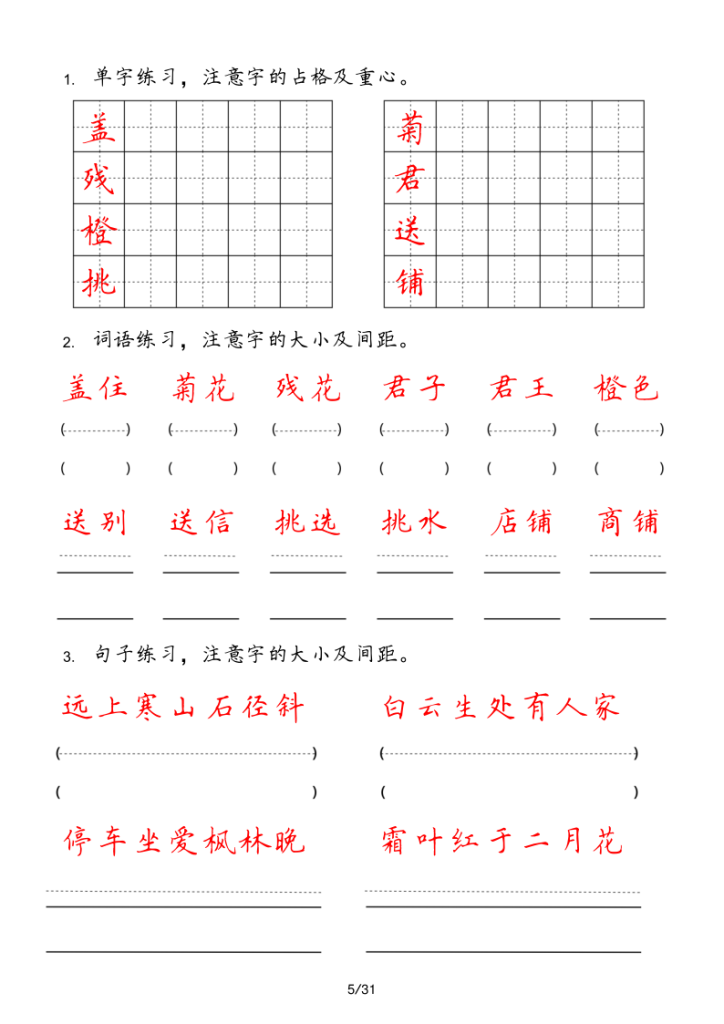 1. 单字练习，注意字的占格及重心。
盖 菊
残 君
橙 送
挑 铺
2. 词语练习，注意字的大小及间距。
盖住 菊花 残花 君子 君王 橙色
( ) ( ) ( ) ( ) ( ) ( )
( ) ( ) ( ) ( ) ( ) ( )
送别 送信 挑选 挑水 店铺 商铺
3. 句子练习，注意字的大小及间距。
远上寒山石径斜 白云生处有人家
( ) ( )
( ) ( )
停车坐爱枫林晚 霜叶红于二月花
5/31